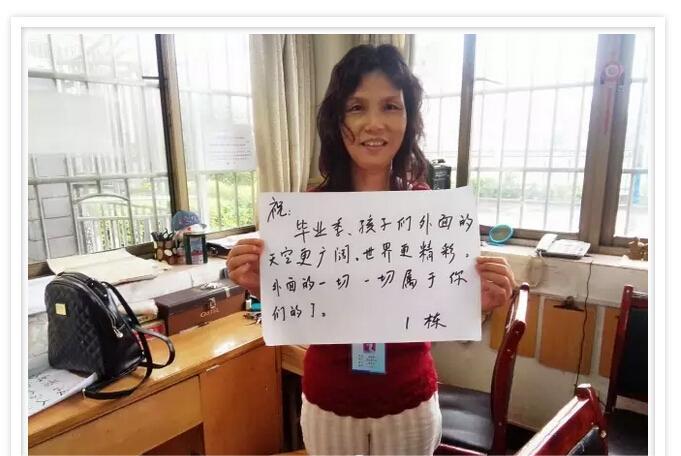 祝:
毕业季、孩子们外面的
天空更广阔,世界更精彩。
外面的一切一切属于你
们的了。
1 栋